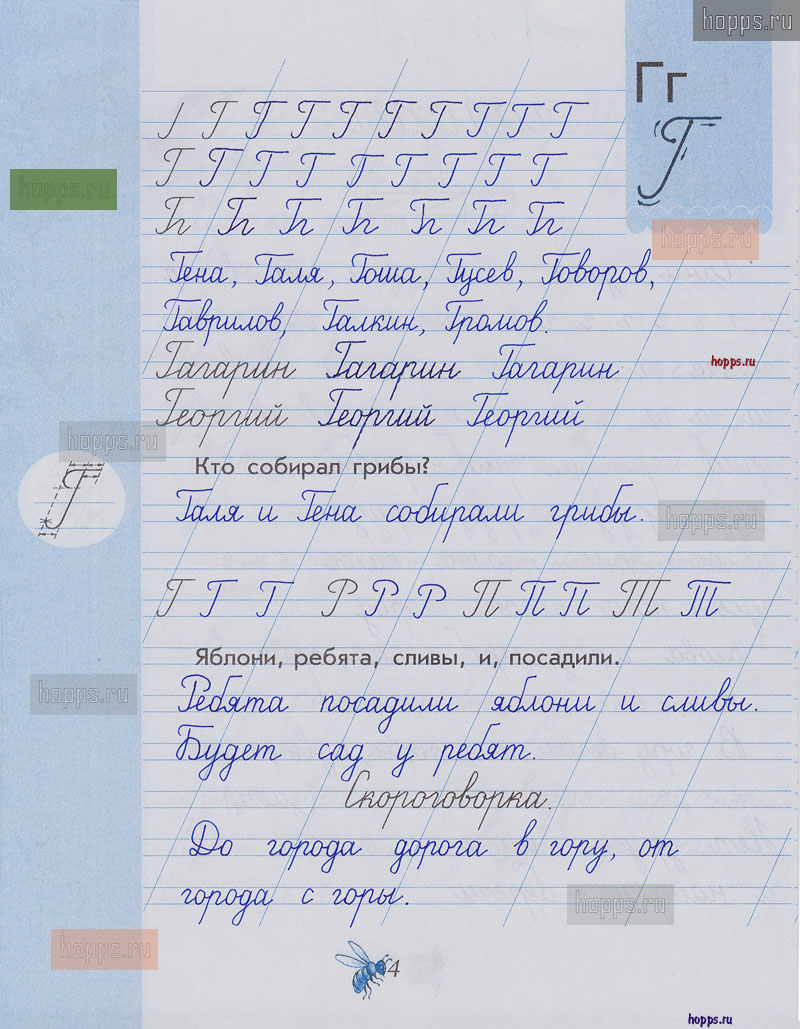 hopps.ru
Гг
Г
hopps.ru
Г Г Г Г Г Г Г Г Г
Г Г Г Г Г Г Г Г Г
hopps.ru
Гена, Галя, Гоша, Гусев, Говоров,
Гаврилов, Галкин, Громов.
hopps.ru
Гагарин Гагарин Гагарин
Георгий Георгий Георгий
hopps.ru
Кто собирал грибы?
Г
Галя и Гена собирали грибы.
hopps.ru
Г Г Г Р Р Р П П П Т Т
Яблони, ребята, сливы, и, посадили.
hopps.ru
Ребята посадили яблони и сливы.
Будет сад у ребят.
Скороговорка.
До города дорога в гору, от
города с горы.
hopps.ru
hopps.ru
4
hopps.ru